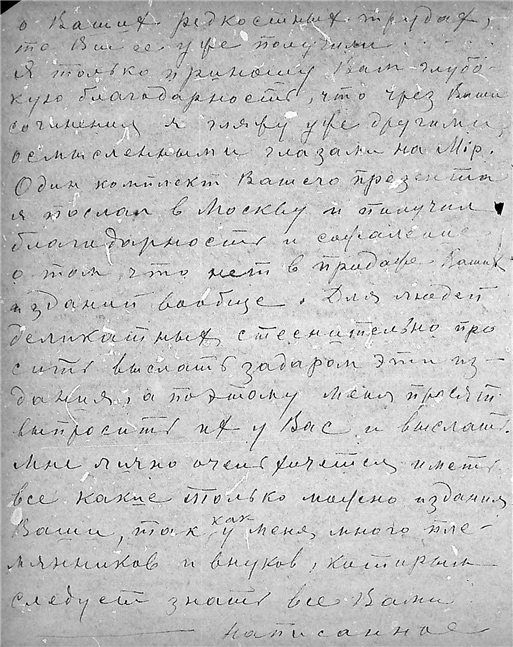 о Ваших редкостных трудах,
то Вы ее уже получили.
Я только приношу Вам глубо-
кую благодарность, что чрез Ваши
сочинения я гляжу уже другими,
осмысленными глазами на Мір.
Один комплект Вашего презента
я послал в Москву и получил
благодарность и сожаление
о том, что нет в продаже Ваших
изданий вообще. Для людей
деликатных стеснительно про
сить выслать задаром эти из-
дания, а поэтому меня просят
выпросить их у Вас и выслать.
Мне лично очень хочется иметь
все какие только можно издания
Ваши, так как у меня много пле-
мянников и внуков, которым
следует знать все Вами
написанное